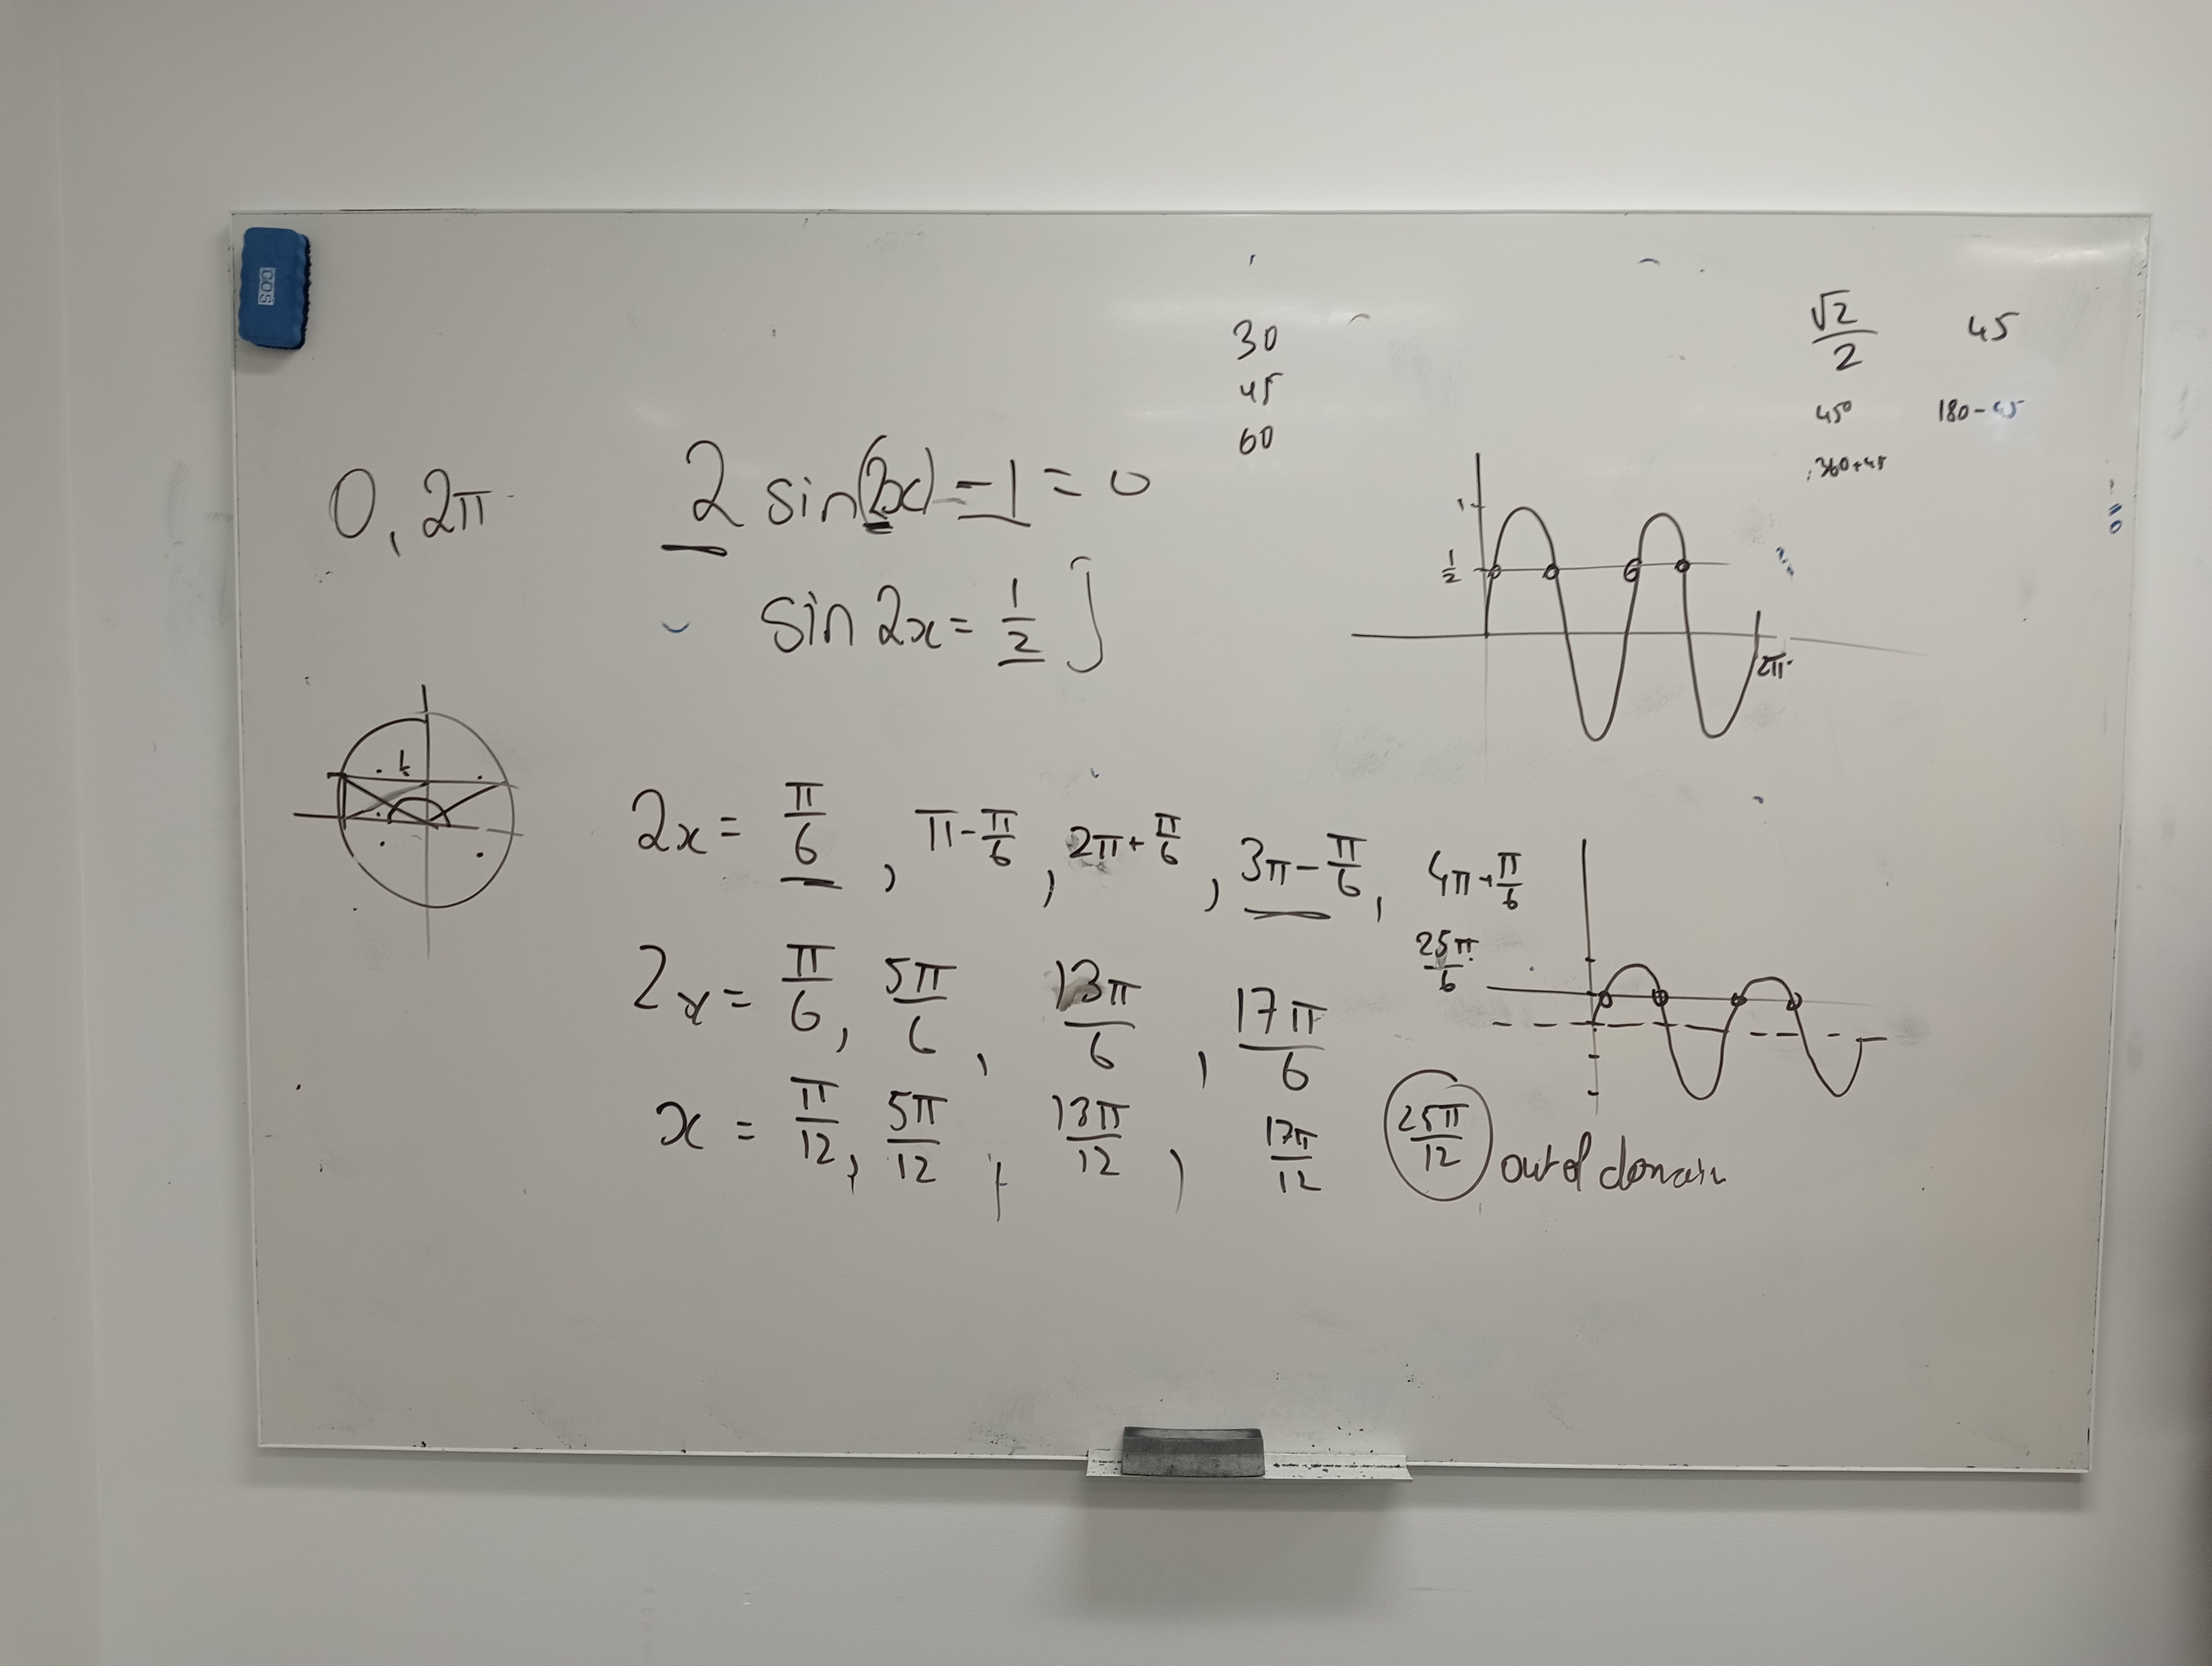 SOD
30
45
60
√2/2 45
45° 180-45
360+45
0, 2π
2 sin(2x) - 1 = 0
sin 2x = 1/2
1
1/2
2π
2x = π/6, π-π/6, 2π+π/6, 3π-π/6, 4π+π/6
2x = π/6, 5π/6, 13π/6, 17π/6 25π/6
x = π/12, 5π/12, 13π/12, 17π/12 25π/12 out of domain